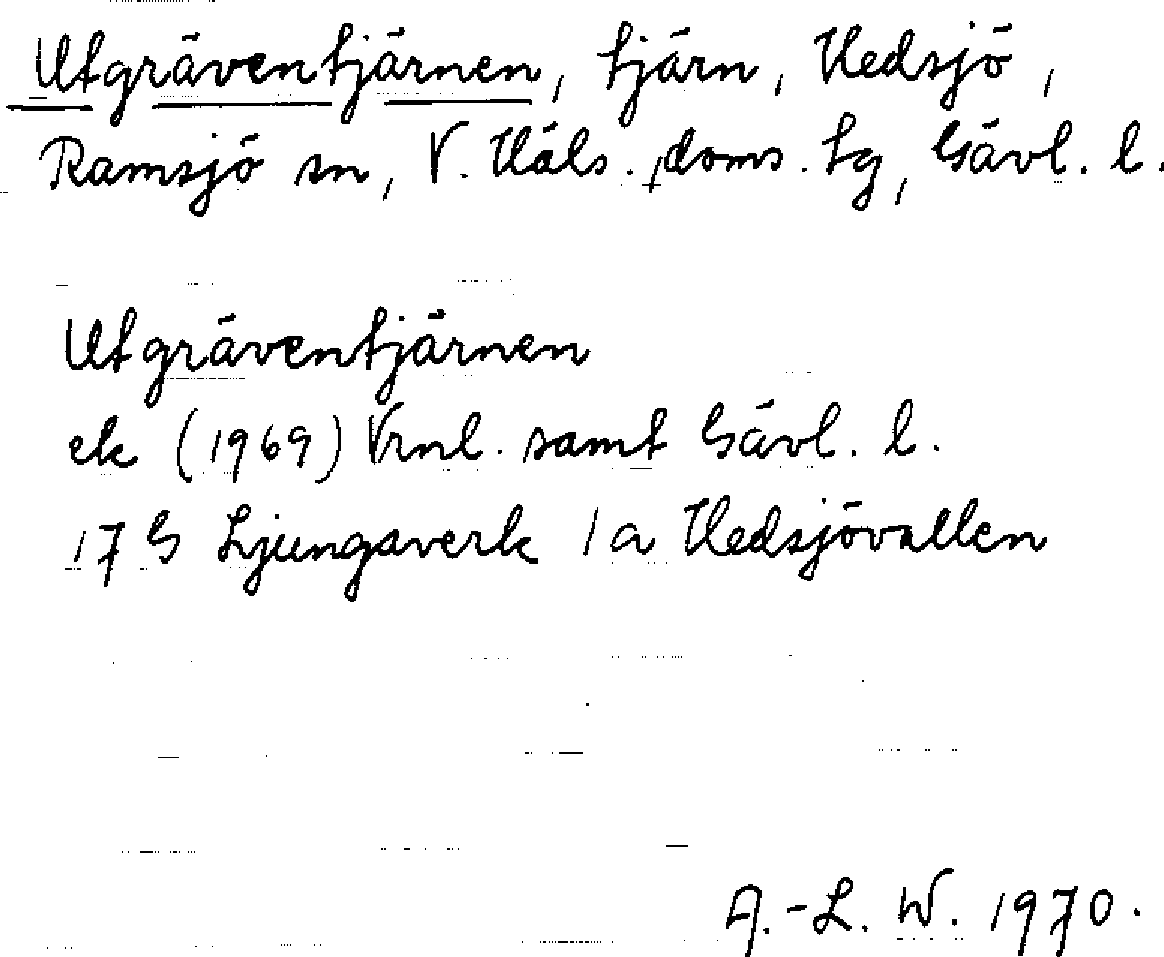 Utgräventjärnen, tjärn, Hedsjö,
Ramsjö sn, V. Häls. doms. tg, Gävl. l.
Utgräventjärnen
ek (1969) Vrnl. samt Gävl. l.
17 G Ljungaverk 1a Hedsjövallen
A.-L. W. 1970.